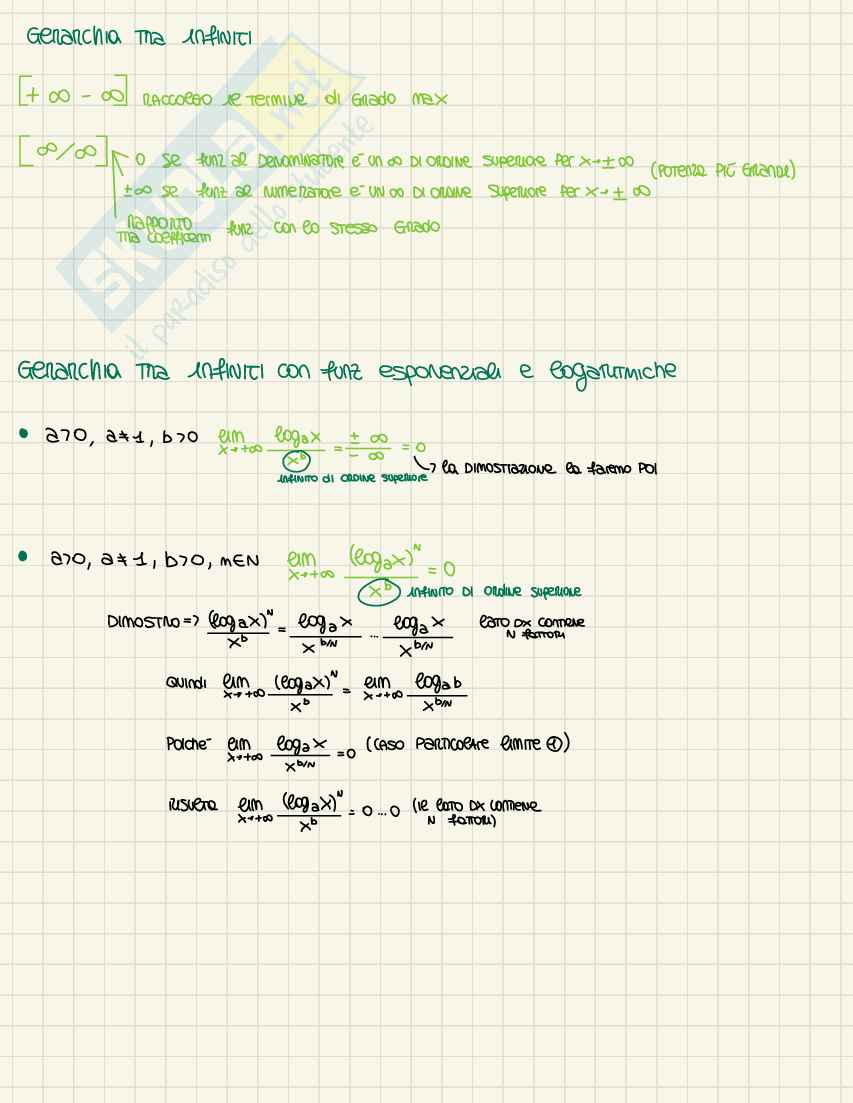 Gerarchia tra infiniti
[+ ∞ - ∞] raccolgo il termine di grado max
[∞/∞] 0 se funz al denominatore è un ∞ di ordine superiore per x→±∞ (potenza più grande)
±∞ se funz al numeratore è un ∞ di ordine superiore per x→±∞
rapporto tra coefficienti funz con lo stesso grado
Gerarchia tra infiniti con funz esponenziali e logaritmiche
• a>0, a≠1, b>0 lim x→+∞ log_a x / x^b = ±∞ / -∞ = 0
→ la dimostrazione la faremo poi
infinito di ordine superiore
• a>0, a≠1, b>0, m∈N lim x→+∞ (log_a x)^N / x^b = 0
infinito di ordine superiore
Dimostro => (log_a x)^N / x^b = log_a x / x^b/N ... log_a x / x^b/N lato dx contiene N fattori
Quindi lim x→+∞ (log_a x)^N / x^b = lim x→+∞ log_a b / x^b/N
Poiché lim x→+∞ log_a x / x^b/N = 0 (caso particolare limite ①)
risulta lim x→+∞ (log_a x)^N / x^b = 0 ... 0 (il lato dx contiene N fattori)
SKUOLA.net
il paradiso dello studente